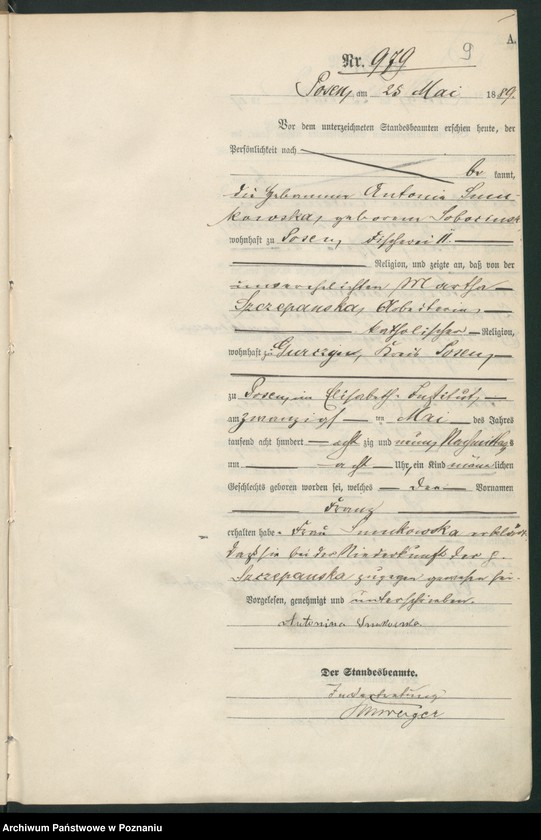 A.
9
Nr. 979
Posen, am 23 Mai 1889.
Vor dem unterzeichneten Standesbeamten erschien heute, der
Persönlichkeit nach
be kannt,
die Hebamme Antonie Smu-
kowska, geborene
wohnhaft zu Posen, Fischerei
Religion, und zeigte an, daß von der
unverehelichten Martha
Szczepanska, Arbeiterin,
katholischer Religion,
wohnhaft zu Gurczyn, Kreis Posen,
zu Posen, im Elisabeth-Institut,
am zwanzigst en Mai des Jahres
tausend acht hundert acht zig und neun, Nachmittags
um acht Uhr, ein Kind männ lichen
Geschlechts geboren worden sei, welches den Vornamen
Franz
erhalten habe. Frau Smukowska erklärt,
daß sie bei der Niederkunft der p.
Szczepanska zugegen gewesen sei.
Vorgelesen, genehmigt und unterschrieben.
Antonina Smukowska
Der Standesbeamte.
In Vertretung
Archiwum Państwowe w Poznaniu